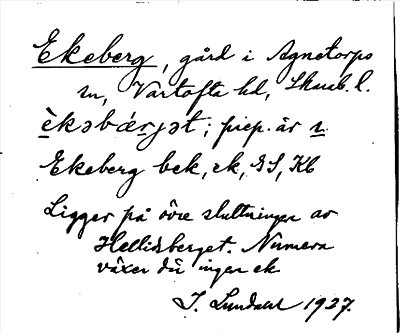 Ekeberg, gård i Agnetorps
sn, Vartofta hd, Skarab. l.
èkəbǽrjət; prep. är n.
Ekeberg bek, ek, GS, Kb
Ligger på övre sluttningen av
Hellidsberget. Numera
växer där ingen ek
J. Lundahl 1927.